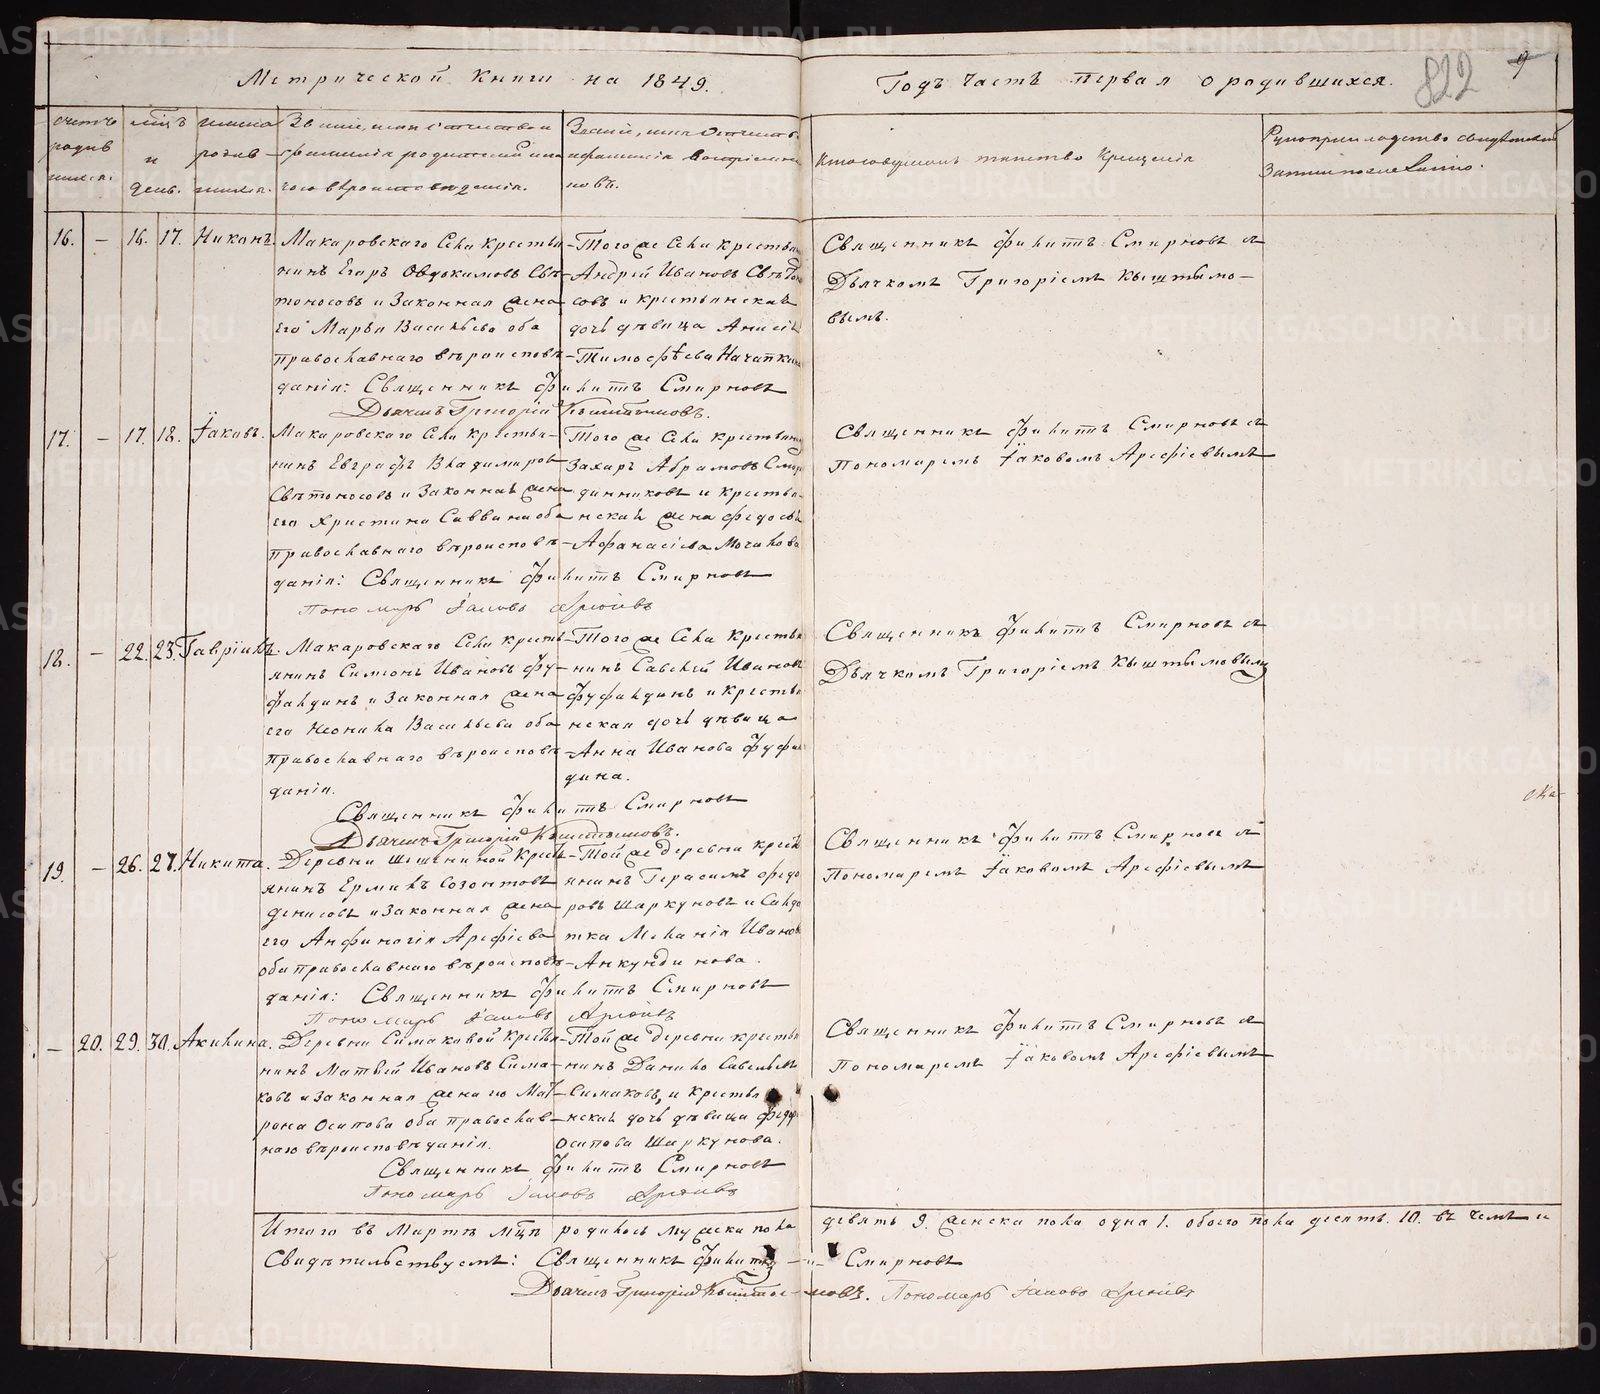 Метрической Книги на 1849.
Годъ Часть первая о родившихся.
822
9
счетъ родив
шихся.
мѣц̃ъ
и
день.
имена
родив-
шихся.
Звание, имя отчество и
фамилія родителей и ка
кого вѣроисповѣданія.
Званіе, имя Отчество
и фамилія воспріемни
ковъ.
Кто совершалъ таинство Крещенія
Рукоприкладство свидѣтелей
Записи по желанію.
16. – 16. 17. Никонъ.
Макаровскаго Села крестья
нинъ Егоръ Овдокимовъ Свѣ
тоносовъ и Законная жена
его Марья Васильева оба
православнаго вѣроисповѣ
данія: Священникъ Филиппъ Смирновъ
Дьячекъ Григорій Кыштымовъ.
Того же Села крестьянинъ
Андрей Ивановъ Свѣтоно
совъ и крестьянская
дочь дѣвица Анисія
Тимофѣева Начапкина
Священникъ Филиппъ Смирновъ съ
Дьячкомъ Григоріемъ Кыштымо-
вымъ.
17. – 17. 18. Іаковъ.
Макаровскаго Села крестья-
нинъ Евграфъ Владимировъ
Свѣтоносовъ и Законная жена
его Христина Саввина оба
православнаго вѣроисповѣ
данія: Священникъ Филиппъ Смирновъ
Пономарь Іаковъ Арефьевъ
Того же Села крестьянинъ
Захаръ Абрамовъ Смор
динниковъ и крестья-
нская жена Федосья
Афанасіева Мочалова
Священникъ Филиппъ Смирновъ съ
Пономаремъ Іаковомъ Арефіевымъ
18. – 22. 23. Гавріилъ.
Макаровскаго Села крестья
янинъ Симіонъ Ивановъ Фу-
фалдинъ и Законная жена
его Неонила Васильева оба
православнаго вѣроисповѣ
данія.
Священникъ Филиппъ Смирновъ
Дьячекъ Григорій Кыштымовъ.
Того же Села крестья
нинъ Савелій Ивановъ
Фуфалдинъ и Крестья
нская дочь дѣвица
Анна Иванова Фуфал
дина.
Священникъ Филиппъ Смирновъ съ
Дьячкомъ Григоріемъ Кыштымовымъ
19. – 26. 27. Никита.
Деревни Шешениной Крест
янинъ Ермилъ Созонтовъ
Денисовъ и Законная жена
его Анфиногія Арефіева
оба православнаго вѣроисповѣ
данія: Священникъ Филиппъ Смирновъ
Пономарь Іаковъ Арефьевъ
Той же деревни крест
янинъ Герасимъ Федо
ровъ Шаркуновъ и Салда
тка Меланія Иванова
Анкундинова.
Священникъ Филиппъ Смирновъ съ
Пономаремъ Іаковомъ Арефіевымъ
– 20. 29. 30. Акилина.
Деревни Симаковой Крестья
нинъ Матвѣй Ивановъ Сима-
ковъ и Законная жена его Мат
рона Осипова оба православ-
наго вѣроисповѣданія.
Священникъ Филиппъ Смирновъ
Пономарь Іаковъ Арефьевъ
Той же деревни крестья
нинъ Данило Савельевъ
Симаковъ, и Крестья
нская дочь дѣвица Федо
Осипова Шаркунова.
Священникъ Филиппъ Смирновъ съ
Пономаремъ Іаковомъ Арефіевымъ
Итого въ Мартѣ мц̃ѣ родилось мужеска пола девять 9. женска пола одна 1. обоего пола десять. 10. въ чемъ и
Свидѣтельствуемъ: Священникъ Филиппъ Смирновъ
Дьячекъ Григорій Кыштымовъ. Пономарь Іаковъ Арефьевъ
METRIKI.GASO-URAL.RU